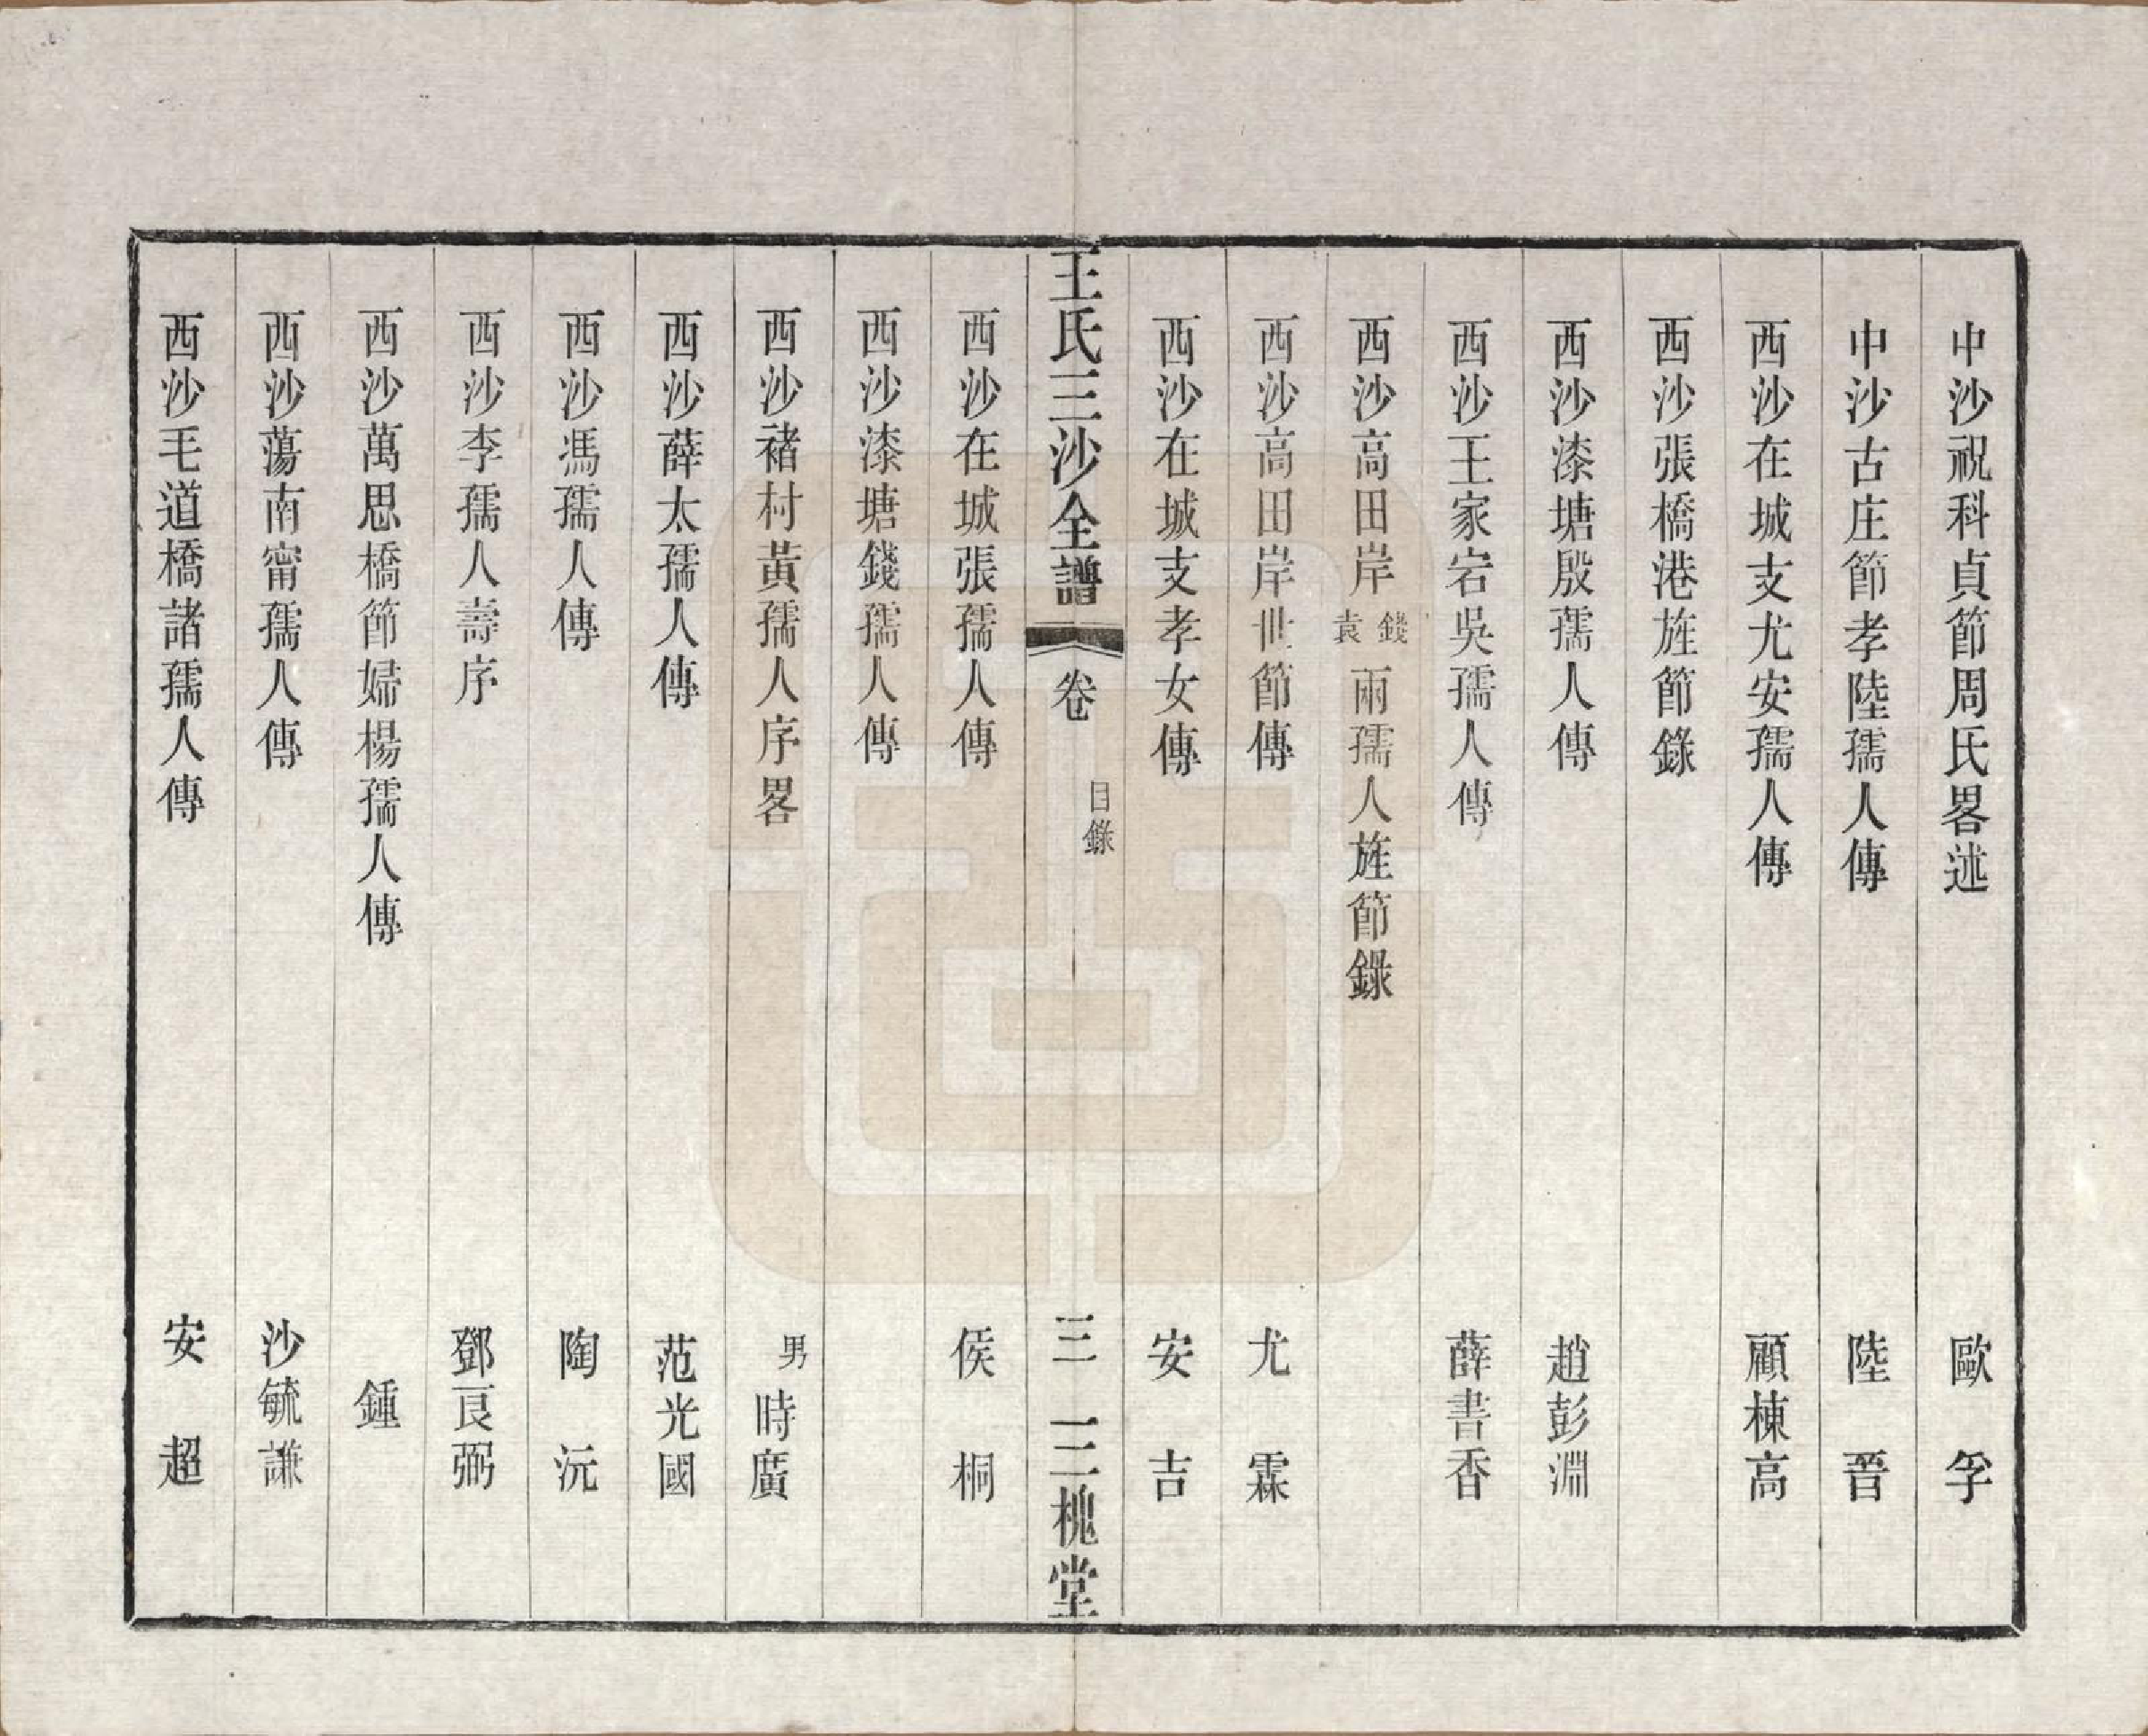 中沙祝科貞節周氏畧述 歐 孚
中沙古庄節孝陸孺人傳 陸 晉
西沙在城支尤安孺人傳 顧棟高
西沙張橋港旌節錄
西沙漆塘殷孺人傳 趙彭淵
西沙王家宕吳孺人傳 薛書香
西沙高田岸錢袁兩孺人旌節錄
西沙高田岸世節傳 尤 霖
西沙在城支孝女傳 安 吉
王氏三沙全譜 卷 目錄 三 三槐堂
西沙在城張孺人傳 侯 桐
西沙漆塘錢孺人傳
西沙褚村黃孺人序畧 男時廣
西沙薛太孺人傳 范光國
西沙馮孺人傳 陶 沅
西沙李孺人壽序 鄧良弼
西沙萬思橋節婦楊孺人傳 鍾
西沙蕩南甯孺人傳 沙毓謙
西沙毛道橋諸孺人傳 安 超